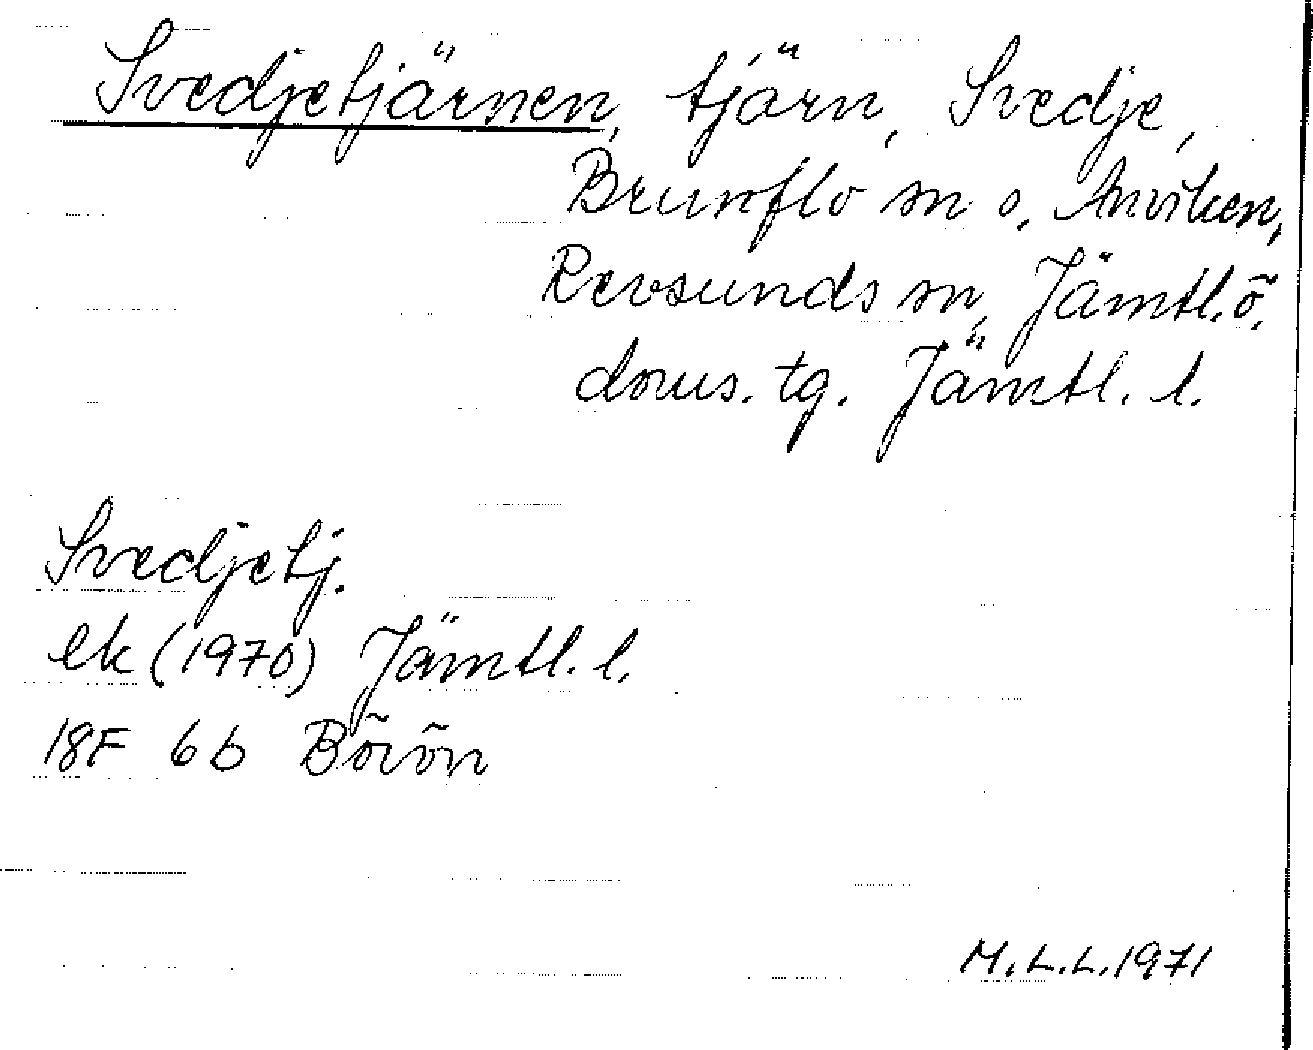 Svedjetjärnen, tjärn, Svedje,
Brunflo sn o. Anviken,
Revsunds sn, Jämtl. ö.
doms. tg. Jämtl. l.
Svedjetj.
ek (1970) Jämtl. l.
18F 6b Börön
M.L.L. 1971